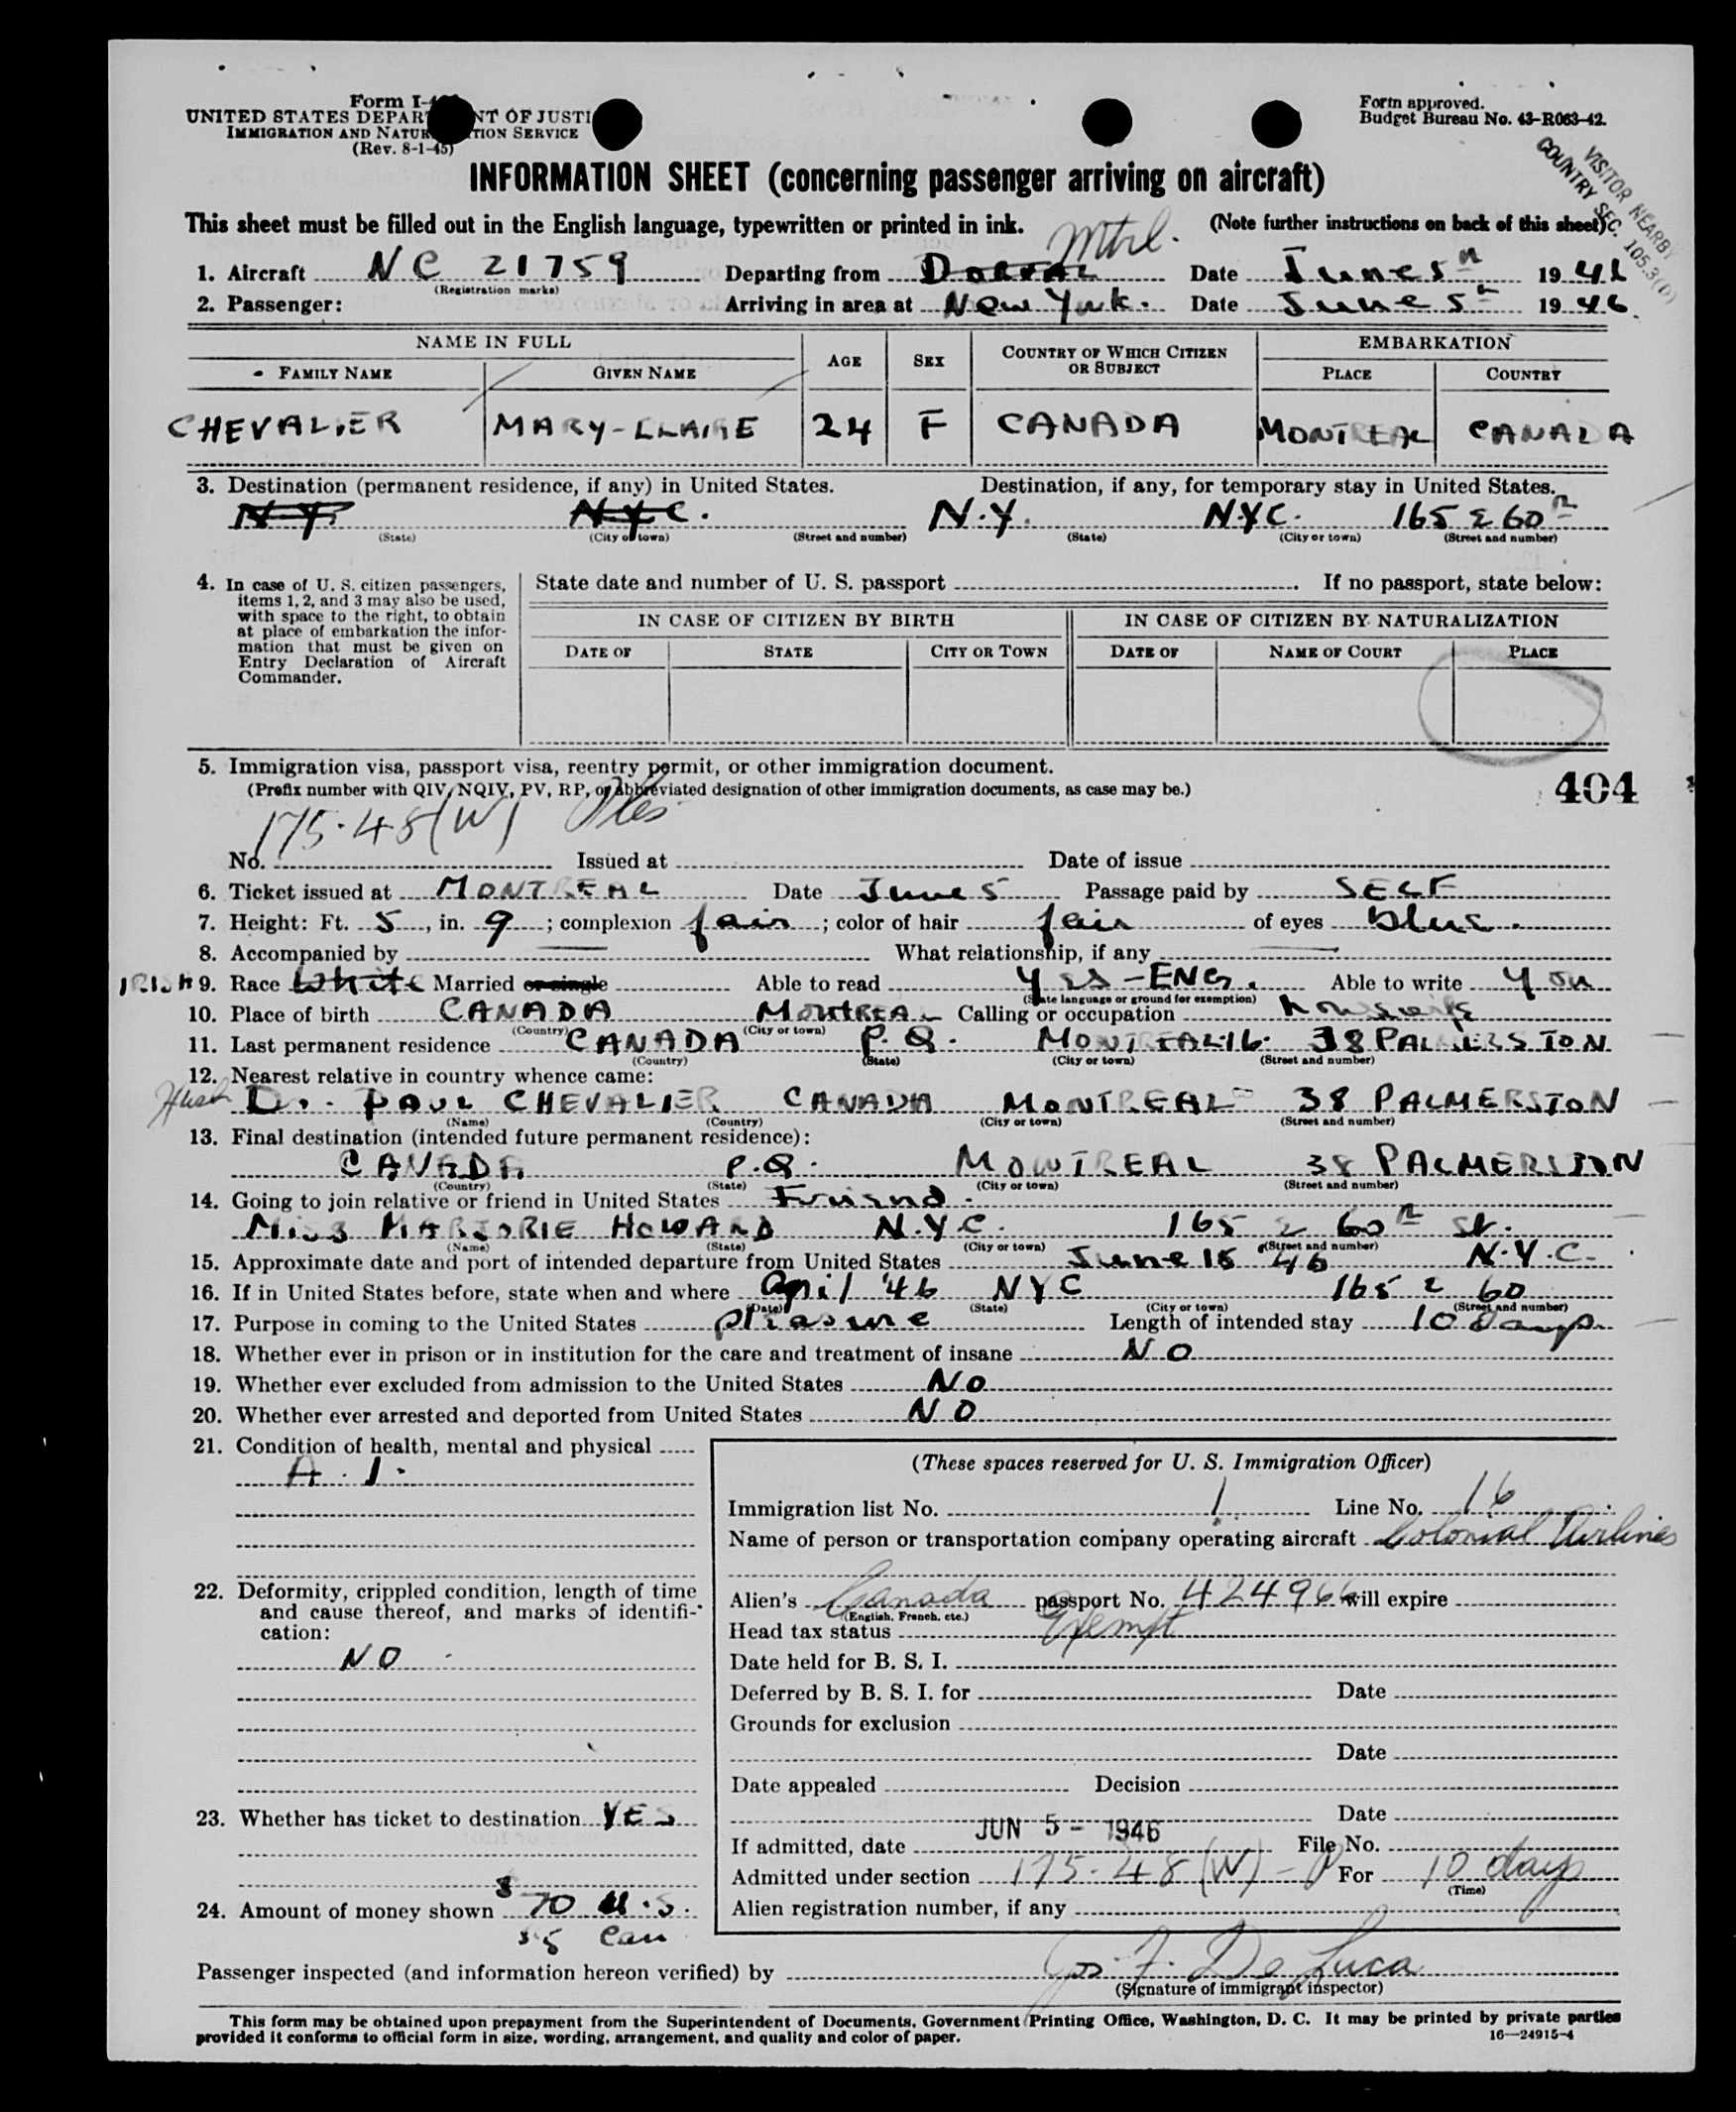 Form I-
UNITED STATES DEPAR NT OF JUSTI
IMMIGRATION AND NATUR TION SERVICE
(Rev. 8-1-45)
Form approved.
Budget Bureau No. 43-R063-42.
VISITOR NEARBY
COUNTRY SEC. 105.3(D)
INFORMATION SHEET (concerning passenger arriving on aircraft)
This sheet must be filled out in the English language, typewritten or printed in ink.
(Note further instructions on back of this sheet)
Mtrl.
1. Aircraft NC 21759 Departing from DORVAL Date June 5th 1946
(Registration marks)
2. Passenger: Arriving in area at New York. Date June 5th 1946.
NAME IN FULL AGE SEX COUNTRY OF WHICH CITIZEN OR SUBJECT EMBARKATION
FAMILY NAME GIVEN NAME PLACE COUNTRY
CHEVALIER MARY-CLAIRE 24 F CANADA MONTREAL CANADA
3. Destination (permanent residence, if any) in United States. Destination, if any, for temporary stay in United States.
N.Y. N.Y.C. N.Y. N.Y.C. 165 E 60th
(State) (City or town) (Street and number) (State) (City or town) (Street and number)
4. In case of U. S. citizen passengers, items 1, 2, and 3 may also be used, with space to the right, to obtain at place of embarkation the information that must be given on Entry Declaration of Aircraft Commander.
State date and number of U. S. passport . If no passport, state below:
IN CASE OF CITIZEN BY BIRTH IN CASE OF CITIZEN BY NATURALIZATION
DATE OF STATE CITY OR TOWN DATE OF NAME OF COURT PLACE
5. Immigration visa, passport visa, reentry permit, or other immigration document.
(Prefix number with QIV, NQIV, PV, RP, or abbreviated designation of other immigration documents, as case may be.)
404
175.48(W)
No. Issued at Date of issue
6. Ticket issued at MONTREAL Date June 5 Passage paid by SELF
7. Height: Ft. 5, in. 9; complexion fair; color of hair fair of eyes blue.
8. Accompanied by — What relationship, if any —
IRISH 9. Race White Married or single Able to read Yes - ENG. Able to write Yes
(State language or ground for exemption)
10. Place of birth CANADA MONTREAL Calling or occupation housewife
(Country) (City or town)
11. Last permanent residence CANADA P.Q. MONTREAL.16. 38 PALMERSTON
(Country) (State) (City or town) (Street and number)
12. Nearest relative in country whence came:
Husb Dr. PAUL CHEVALIER CANADA MONTREAL 38 PALMERSTON
(Name) (Country) (City or town) (Street and number)
13. Final destination (intended future permanent residence):
CANADA P.Q. MONTREAL 38 PALMERSTON
(Country) (State) (City or town) (Street and number)
14. Going to join relative or friend in United States Friend.
MISS MARJORIE HOWARD N.Y.C. 165 E 60th St.
(Name) (State) (City or town) (Street and number)
15. Approximate date and port of intended departure from United States June 15 46 N.Y.C.
16. If in United States before, state when and where April '46 NYC 165 E 60
(Date) (State) (City or town) (Street and number)
17. Purpose in coming to the United States pleasure Length of intended stay 10 days
18. Whether ever in prison or in institution for the care and treatment of insane NO
19. Whether ever excluded from admission to the United States NO
20. Whether ever arrested and deported from United States NO
21. Condition of health, mental and physical
A.1.
22. Deformity, crippled condition, length of time and cause thereof, and marks of identification:
NO
23. Whether has ticket to destination YES
24. Amount of money shown $70 U.S.
$5 Can
(These spaces reserved for U. S. Immigration Officer)
Immigration list No. 1 Line No. 16
Name of person or transportation company operating aircraft Colonial Airlines
Alien's Canada passport No. 424966 will expire
(English, French, etc.)
Head tax status Exempt
Date held for B. S. I.
Deferred by B. S. I. for Date
Grounds for exclusion
Date
Date appealed Decision
Date
If admitted, date JUN 5 - 1946 File No.
Admitted under section 175.48(W)-P For 10 days
(Time)
Alien registration number, if any
Passenger inspected (and information hereon verified) by Jos. F. De Luca
(Signature of immigrant inspector)
This form may be obtained upon prepayment from the Superintendent of Documents, Government Printing Office, Washington, D. C. It may be printed by private parties
provided it conforms to official form in size, wording, arrangement, and quality and color of paper.
16—24915-4